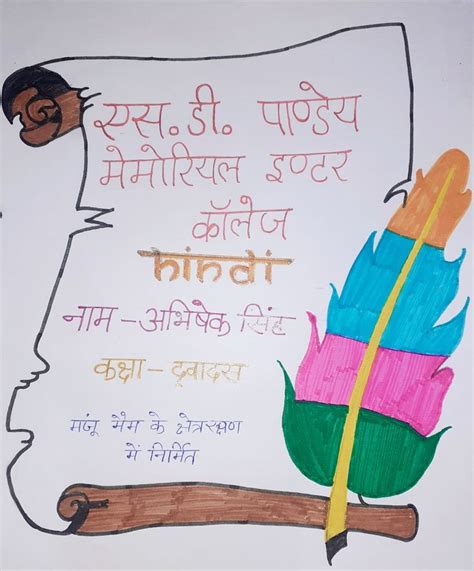 एस. डी. पाण्डेय
मेमोरियल इण्टर
कॉलेज
hindi
नाम - अभिषेक सिंह
कक्षा - द्वादस
मंजू मैम के क्षेत्ररक्षण
में निर्मित